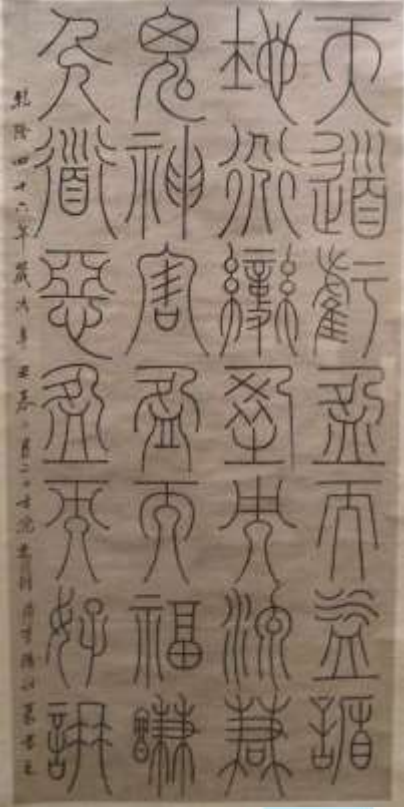 天道虧盈而益謙
地道變盈而流謙
鬼神害盈而福謙
人道惡盈而好謙
乾隆四十六年歲次辛丑春二月